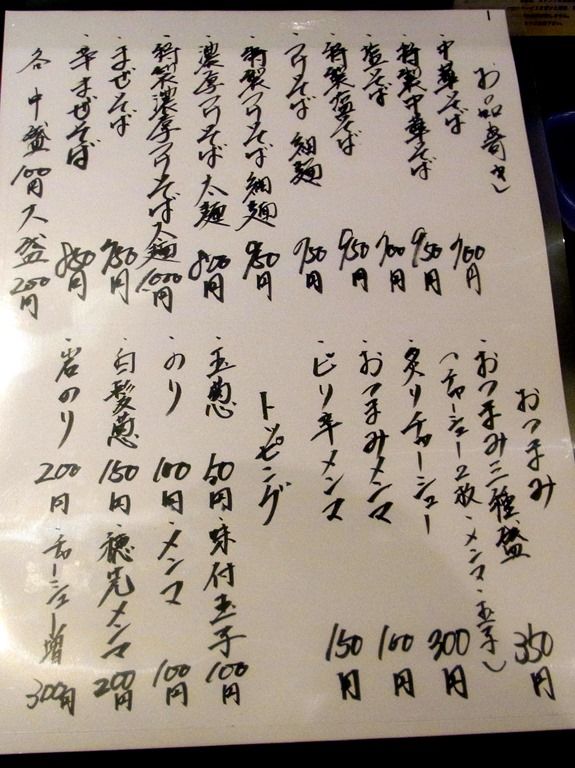 お品書き
・中華そば 700円
・特製中華そば 950円
・塩そば 700円
・特製塩そば 950円
・つけそば 細麺 750円
・特製つけそば 細麺 950円
・濃厚つけそば 太麺 800円
・特製濃厚つけそば 太麺 1000円
・まぜそば 750円
・辛まぜそば 850円
各 中盛100円 大盛200円
おつまみ
・おつまみ三種盛 350円
(チャーシュー2枚・メンマ・玉子)
・炙りチャーシュー 300円
・おつまみメンマ 100円
・ピリ辛メンマ 150円
トッピング
・玉葱 50円 ・味付玉子 100円
・のり 100円 ・メンマ 100円
・白髪葱 150円 ・穂先メンマ 200円
・岩のり 200円 ・チャーシュー増 300円